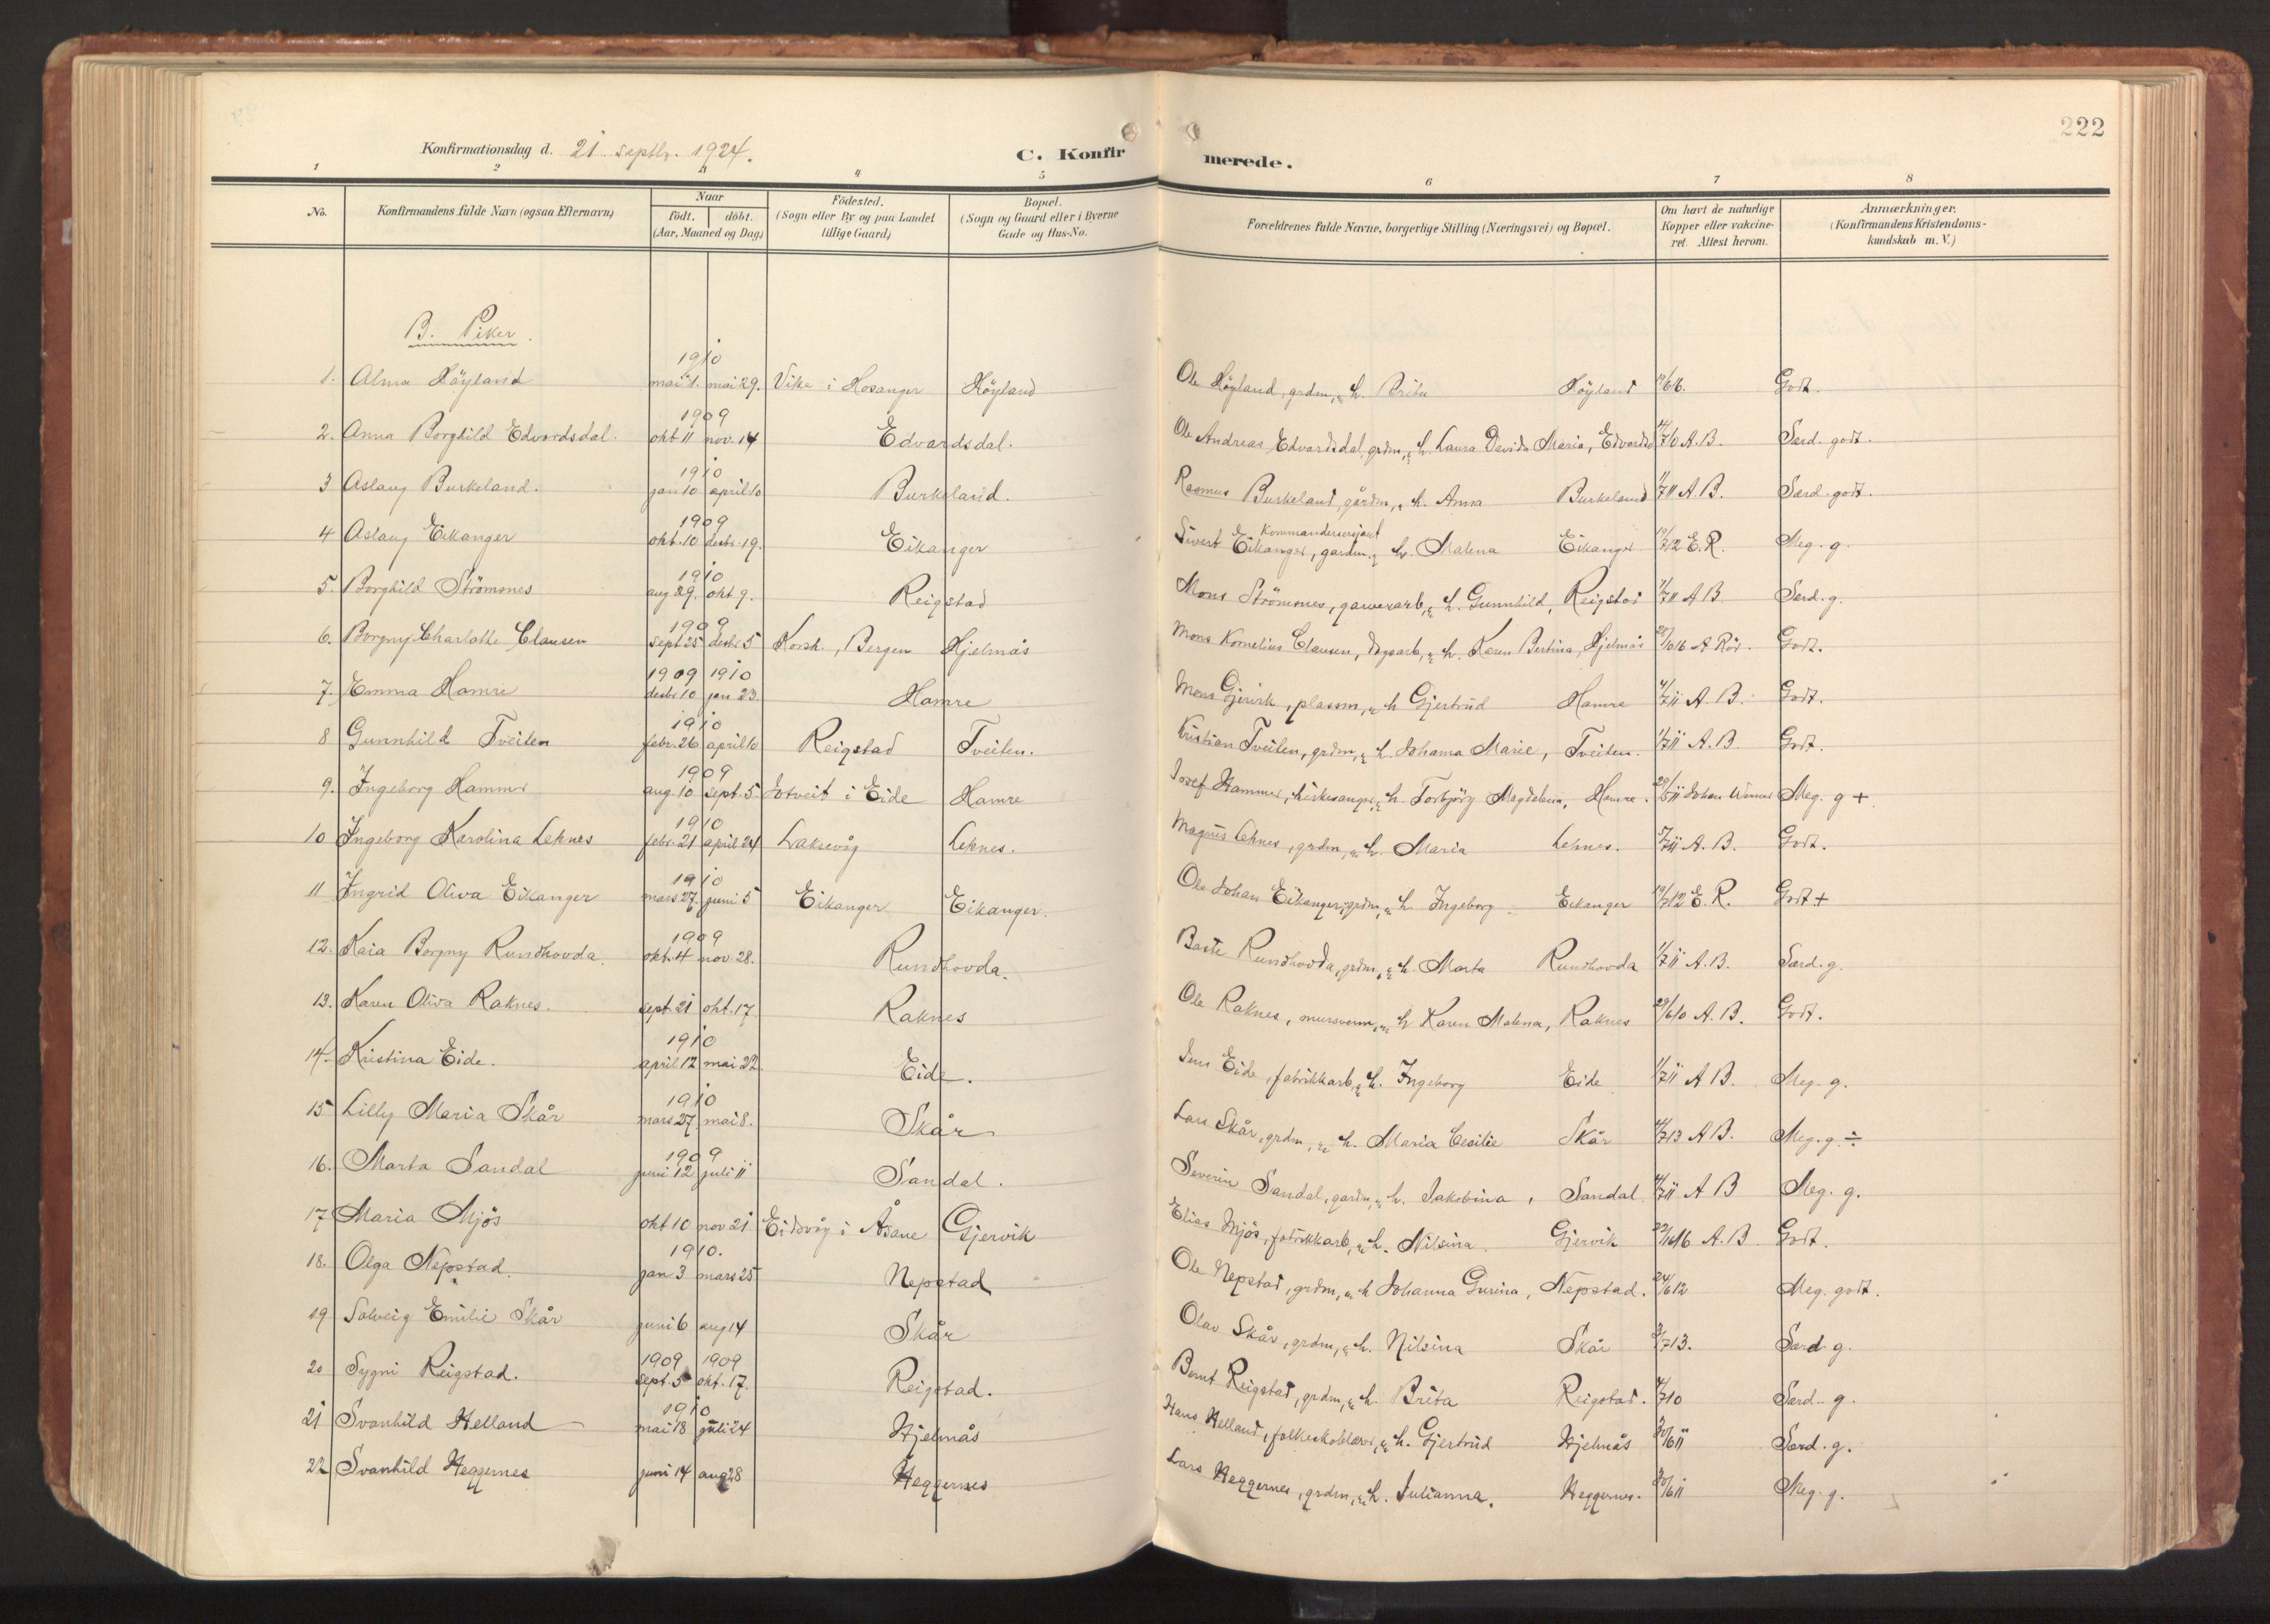 222
Konfirmationsdag d. 21 septbr. 1924.
C. Konfirmerede.
1 2 3 4 5 6 7 8
No. Konfirmandens fulde Navn (ogsaa Efternavn) Naar født. døbt. (Aar, Maaned og Dag) Födested. (Sogn eller By og paa Landet tillige Gaard) Bopæl. (Sogn og Gaard eller i Byerne Gade og Hus-No. Forældrenes fulde Navne, borgerlige Stilling (Næringsvei) og Bopæl. Om havt de naturlige Kopper eller vakcineret. Attest herom. Anmærkninger. (Konfirmandens Kristendomskundskab m. V.)
B. Piker.
1910
1. Alma Høyland mai 1. mai 29. Vike i Hosanger Høyland Ole Høyland, grdm, & h. Brita Høyland Godt.
1909
2. Anna Borghild Edvardsdal. okt 11 nov. 14 Edvardsdal. Ole Andreas Edvardsdal, grdm, & h. Laura Davida Maria, Edvardsd 7/10 A.B. Særd. godt.
1910
3 Aslaug Burkeland. jan 10 april 10 Burkeland. Rasmus Burkeland, gårdm, & h. Anna Burkeland 1/7 11 A.B. Særd. godt.
1909
4 Aslaug Eikanger okt. 10 desbr. 19. Eikanger Sivert Eikanger, kommandersersjant gardm. & h. Malena Eikanger 19/7 12 E.R. Meg. g.
1910
5. Borghild Strömsnes aug 29. okt 9. Reigstad Mons Strömsnes, garverarb, & h. Gunnhild, Reigstad 1/7 11 A B. Særd. g.
1909
6. Borgny Charlotte Clausen sept 25 desbr 5 Korsk., Bergen Hjelmås Mons Kornelius Clausen, dagsarb, & h. Karen Bertina, Hjelmås Godt.
1909 1910
7. Emma Hamre desbr 10 jan 23. Hamre Mons Gjervik, plassm, & h Gjertrud Hamre 4/7 11 A. B. Godt.
1910
8 Gunnhild Tveiten febr. 26 april 10 Reigstad Tveiten. Kristian Tveiten, grdm, & h. Johanna Marie, Tveiten. 1/7 11 A. B. Godt.
1909
9. Ingeborg Hammer aug. 10 sept. 5. i Eide Hamre Josef Hammer, kirkesanger, & h. Torbjörg Magdalena, Hamre. Johan Meg. g +.
1910
10 Ingeborg Karolina Leknes febr. 21 april 24 Laksevåg Leknes. Magnus Leknes, grdm, & h. Maria Leknes. 5/7 11 A. B. Godt.
1910
11 Ingrid Oliva Eikanger mars 27. juni 5 Eikanger Eikanger. Ole Johan Eikanger, grdm, & h. Ingeborg Eikanger 19/7 12 E. R. Godt +
1909
12. Kaia Borgny Rundhovda. okt. 4 nov. 28. Rundhovda. Baste Rundhovda, grdm, & h. Marta Rundhovda 1/7 11 A.B. Særd. g.
13. Karen Oliva Raknes. sept. 21 okt. 17. Raknes Ole Raknes, mursvenn, & h Karen Malena, Raknes 29/6 10 A. B. Godt.
1910
14. Kristina Eide. april 12 mai 22. Eide. Jens Eide, fabrikkarb, & h. Ingeborg Eide 1/7 11 A B. Meg. g.
1910
15 Lilly Maria Skår mars 27. mai 8. Skår Lars Skår, grdm, & h. Maria Cecilie Skår 4/7 13 A B. Meg. g. ÷
1909
16. Marta Sandal juni 12 juli 11 Sandal. Severin Sandal, gardm, & h. Jakobina, Sandal 4/7 11 A B Meg. g.
17 Maria Mjös okt 10 nov 21 Eidsvåg i Åsane Gjervik Elias Mjös, fabrikkarb, & h. Nilsina. Gjervik A. B. Godt.
1910.
18. Olga Nepstad. jan 3 mars 25 Nepstad Ole Nepstad, grdm, & h Johanna Gurina, Nepstad. 24/6 12 Meg. godt.
19 Solveig Emilie Skår juni 6 aug 14 Skår Olav Skår, grdm, & h. Nilsina Skår 3/7 13. Særd. g.
1909 1909
20 Sygni Reigstad. sept. 5 okt. 17. Reigstad. Bernt Reigstad, grdm, & h. Brita Reigstad. 4/7 10 Særd. g.
1910
21 Svanhild Helland mai 18 juli 24 Hjelmås Hans Helland, folkeskolelærer, & h. Gjertrud Hjelmås 30/6 11 Særd. g.
22 Svanhild Heggernes juni 14 aug 28 Heggernes Lars Heggernes, grdm, & h. Julianna. Heggernes. 30/6 11 Meg. g.